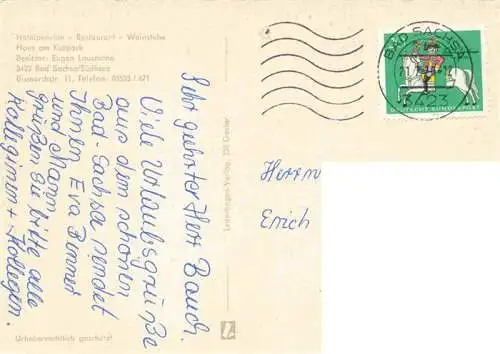 Hotelpension - Restaurant - Weinstube
Haus am Kurpark
Besitzer: Eugen
3423 Bad Sachsa/Südharz
Bismarckstr. 11, Telefon 05523 / 671
Sehr geehrter Herr Bauch.
Viele Urlaubsgrüße
aus dem schönen
Bad-Sachsa sendet
Ihnen Eva
und Mann
grüßen Sie bitte alle
Kolleginnen + Kollegen.
Urheberrechtlich geschützt
Verlag, 338 Goslar
BAD SACHSA
3423
DEUTSCHE BUNDESPOST
Herrn
Erich